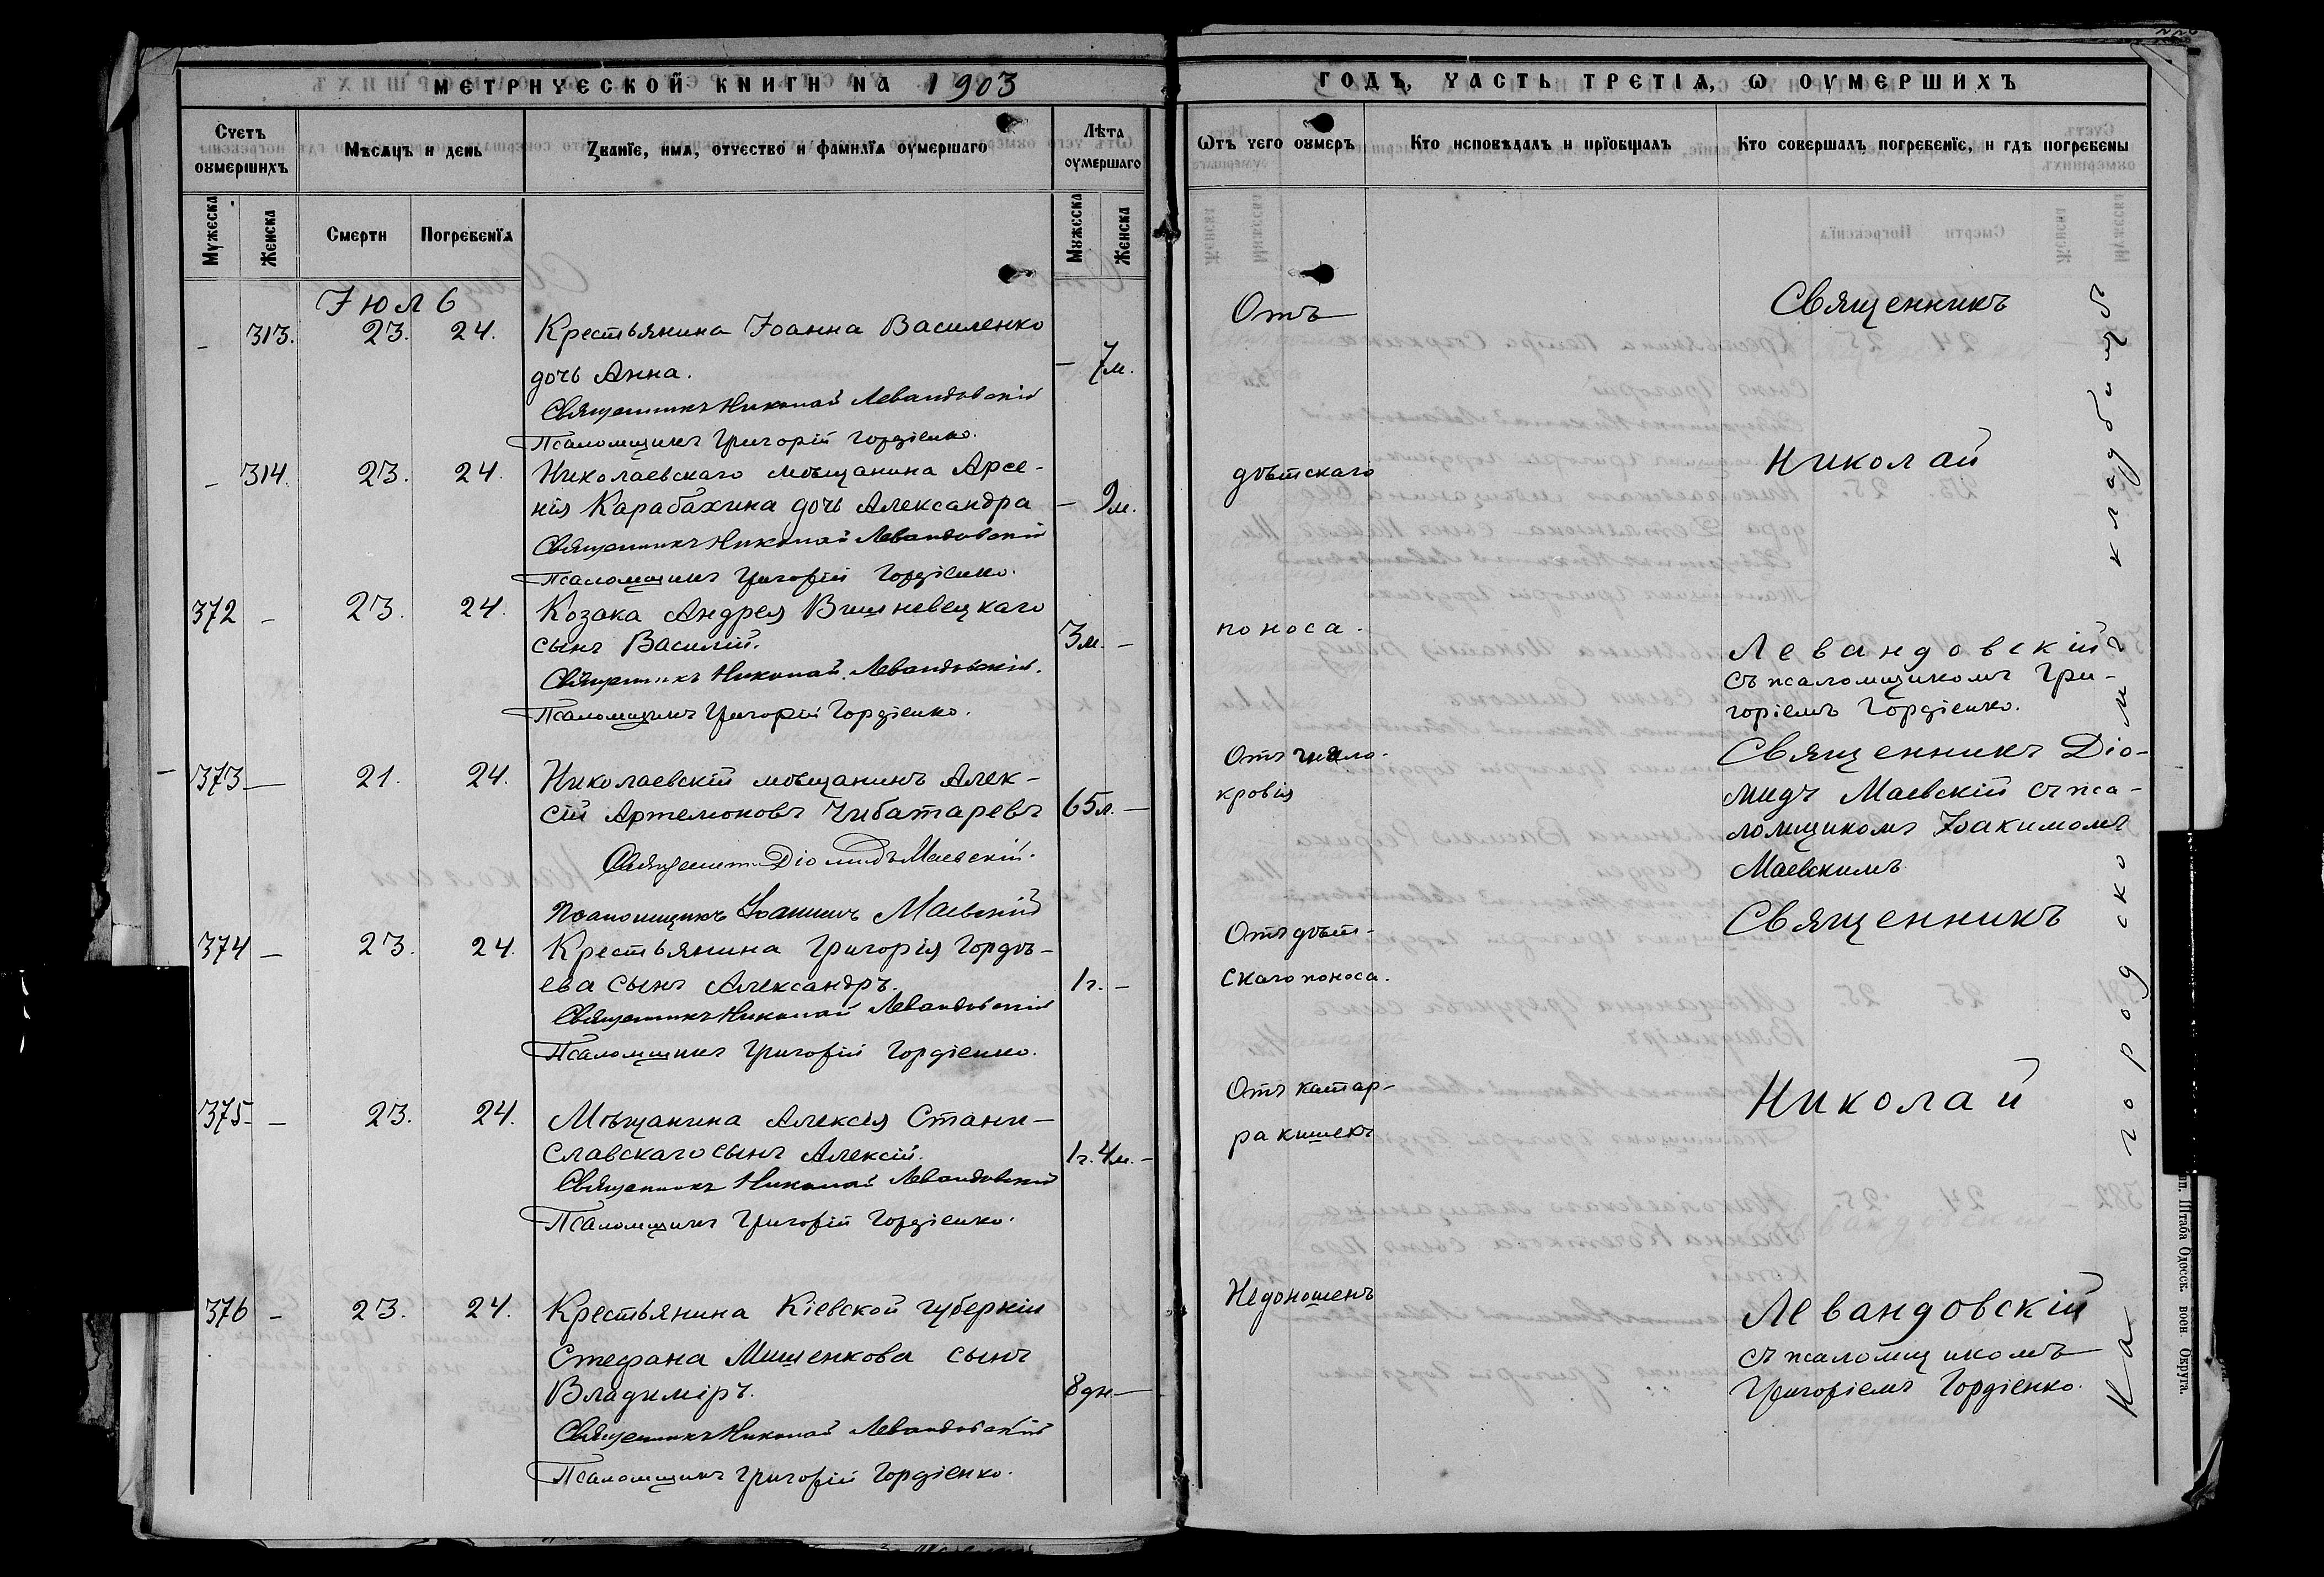 МЕТРИЧЕСКОЙ КНИГИ НА 1903
Счетъ умершихъ
Мѣсяцъ и день
Званіе, имя, отчество и фамилія умершаго
Лѣта умершаго
Мужеска
Женска
Смерти
Погребенія
Мужеска
Женска
Іюль
- 313. 23. 24. Крестьянина Іоанна Василенко
дочь Анна. - 7м.
Священникъ Николай Левандовскій
Псаломщикъ Григорій Гордіенко.
- 314. 23. 24. Николаевскаго мѣщанина Арсе-
нія Карабахина дочь Александра - 9м.
Священникъ Николай Левандовскій
Псаломщикъ Григорій Гордіенко.
372 - 23. 24. Козака Андрея Вишневецкаго
сынъ Василій. 3м. -
Священникъ Николай Левандовскій.
Псаломщикъ Григорій Гордіенко.
373 - 21. 24. Николаевскій мѣщанинъ Алек-
сій Артемоновъ Чибатаревъ 65л. -
Священникъ Діомидъ Маевскій.
Псаломщикъ Маевскій
374 - 23. 24. Крестьянина Григорія Гордѣ-
ева сынъ Александръ. 1г. -
Священникъ Николай Левандовскій
Псаломщикъ Григорій Гордіенко.
375 - 23. 24. Мѣщанина Алексія Стани-
славскаго сынъ Алексій. 1г. 4м. -
Священникъ Николай Левандовскій
Псаломщикъ Григорій Гордіенко.
376 - 23. 24. Крестьянина Кіевской губерніи
Стефана Мишенкова сынъ
Владиміръ. 8дн -
Священникъ Николай Левандовскій
Псаломщикъ Григорій Гордіенко.
ГОДЪ, ЧАСТЬ ТРЕТІЯ, Ѡ ОУМЕРШИХЪ
Ѿтъ чего умеръ
Кто исповѣдалъ и пріобщалъ
Кто совершалъ погребеніе, и гдѣ погребены
Отъ
дѣтскаго
поноса.
Отъ гнило-
кровія
Отъ дѣт-
скаго поноса.
Отъ катар-
ра кишекъ
Недоношенъ
Священникъ
Николай
Левандовскій
съ псаломщикомъ Гри-
горіемъ Гордіенко.
Священникъ Діо-
мидъ Маевскій съ пса-
ломщикомъ Іоакимомъ
Маевскимъ
Священникъ
Николай
Левандовскій
съ псаломщикомъ
Григоріемъ Гордіенко.
На городскомъ кладбищѣ
Штаба Одесск. воен. Округа.